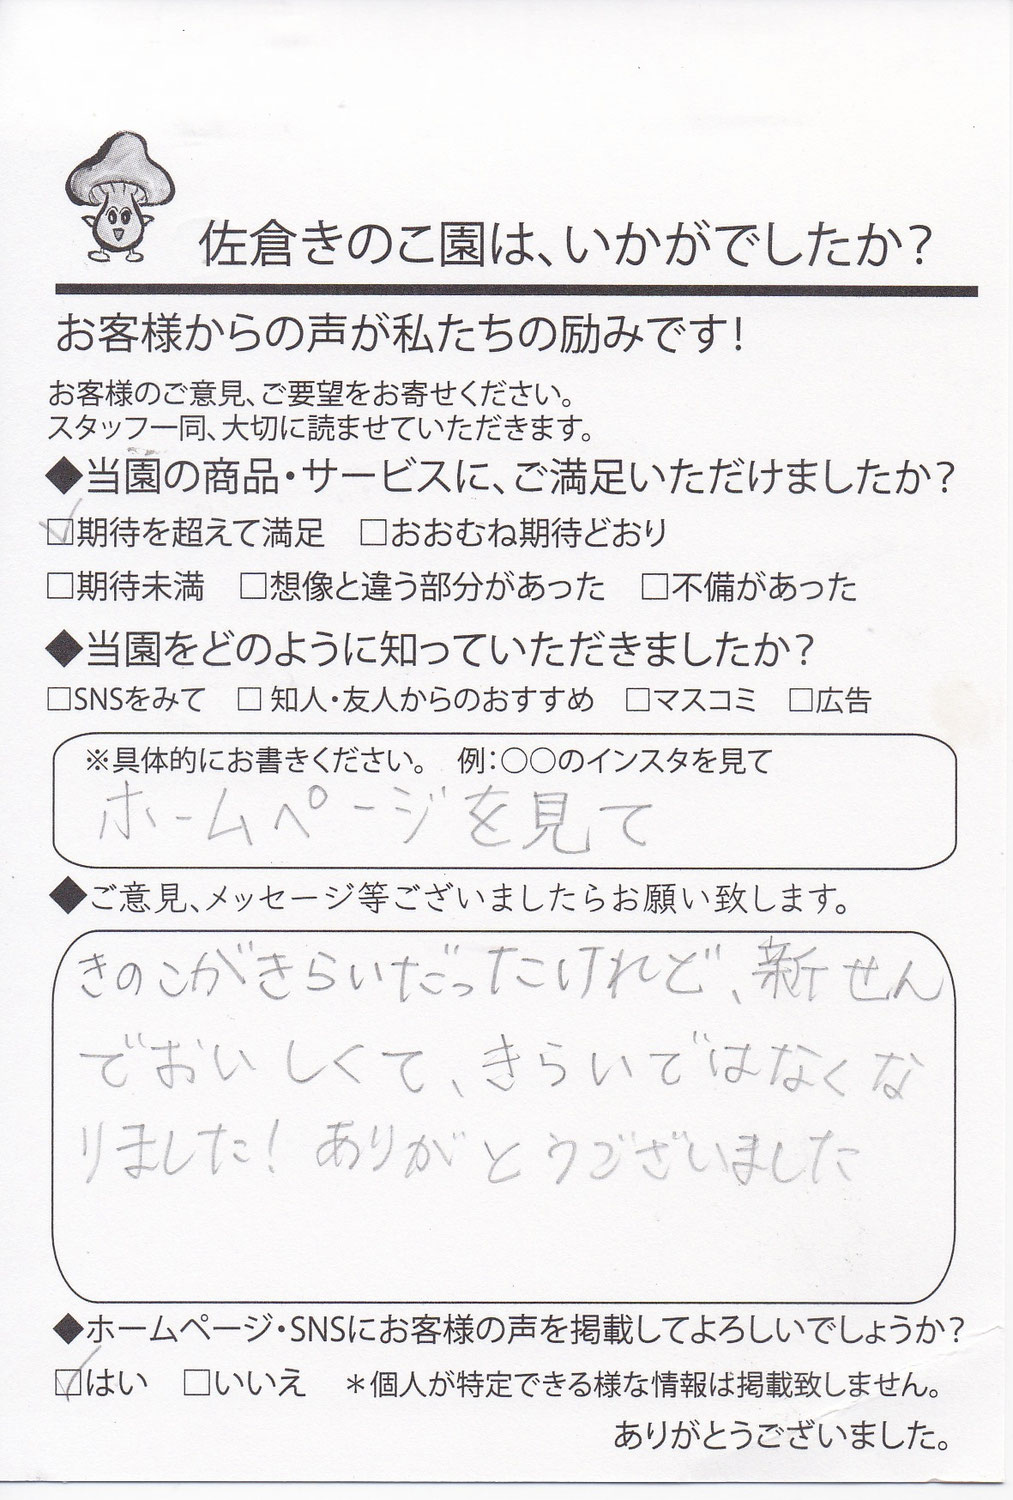 佐倉きのこ園は、いかがでしたか?
お客様からの声が私たちの励みです!
お客様のご意見、ご要望をお寄せください。
スタッフ一同、大切に読ませていただきます。
◆当園の商品・サービスに、ご満足いただけましたか?
☑期待を超えて満足 □おおむね期待どおり
□期待未満 □想像と違う部分があった □不備があった
◆当園をどのように知っていただきましたか?
□SNSをみて □ 知人・友人からのおすすめ □マスコミ □広告
※具体的にお書きください。 例:○○のインスタを見て
ホームページを見て
◆ご意見、メッセージ等ございましたらお願い致します。
きのこがきらいだったけれど、新せん
でおいしくて、きらいではなくな
りました! ありがとうございました
◆ホームページ・SNSにお客様の声を掲載してよろしいでしょうか?
☑はい □いいえ *個人が特定できる様な情報は掲載致しません。
ありがとうございました。